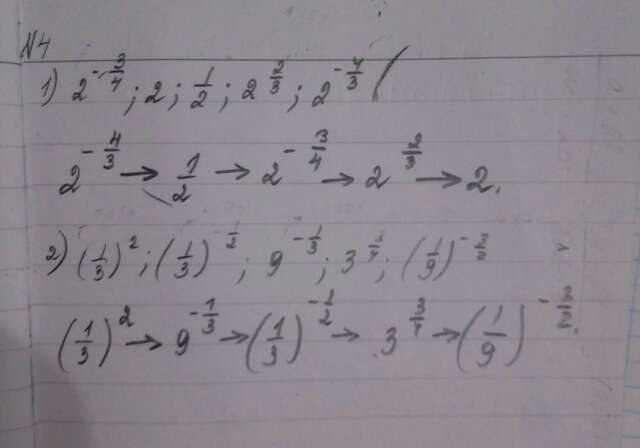 N4
1) 2^(-3/4); 2; 1/2; 2^(2/3); 2^(-4/3)
2^(-4/3) → 1/2 → 2^(-3/4) → 2^(2/3) → 2.
2) (1/3)^2; (1/3)^(-1/2); 9^(-1/3); 3^(3/4); (1/9)
(1/3)^2 → 9^(-1/3) → (1/3)^(-1/2) → 3^(3/4) → (1/9)